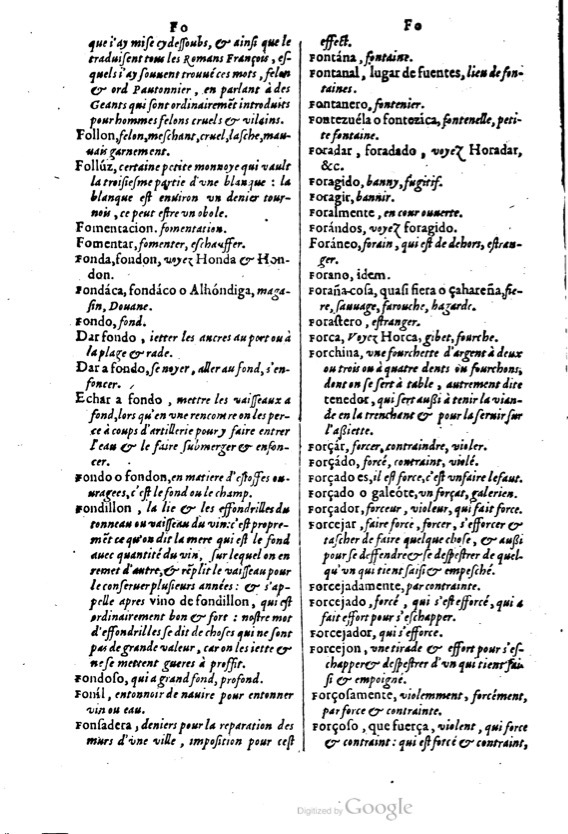 Fo
que i'ay mise cy dessoubs, & ainsi que le
traduisent tous les Romans François, es-
quels i'ay souuent trouué ces mots, felon
& ord Pautonnier, en parlant à des
Geants qui sont ordinairemēt introduits
pour hommes felons cruels & vilains.
Follon, felon, meschant, cruel, lasche, mau-
uais garnement.
Follúz, certaine petite monnoye qui vault
la troisiesme partie d'vne blanque : la
blanque est enuiron vn denier tour-
nois, ce peut estre vn obole.
Fomentacion. fomentation.
Fomentar, fomenter, eschauffer.
Fonda, fondon, voyez Honda & Hon-
don.
Fondáca, fondáco o Alhóndiga, maga-
sin, Douane.
Fondo, fond.
Dar fondo, ietter les ancres au port ou à
la plage & rade.
Dar a fondo, se noyer, aller au fond, s'en-
foncer.
Echar a fondo, mettre les vaisseaux a
fond, lors qu'en vne rencontre on les per-
ce à coups d'artillerie pour y faire entrer
l'eau & le faire submerger & enfon-
cer.
Fondo o fondon, en matiere d'estoffes ou-
uragees, c'est le fond ou le champ.
Fondillon, la lie & les effondrilles du
tonneau ou vaisseau du vin: c'est propre-
mēt ce qu'on dit la mere qui est le fond
auec quantité du vin, sur lequel on en
remet d'autre, & rēplit le vaisseau pour
le conseruer plusieurs années : & s'ap-
pelle apres vino de fondillon, qui est
ordinairement bon & fort : nostre mot
d'effondrilles se dit de choses qui ne sont
pas de grande valeur, car on les iette &
ne se mettent gueres à proffit.
Fondoso, qui a grand fond, profond.
Fonil, entonnoir de nauire pour entonner
vin ou eau.
Fonsadera, deniers pour la reparation des
murs d'vne ville, imposition pour cest
Fo
effect.
Fontána, fontaine.
Fontanal, lugar de fuentes, lieu de fon-
taines.
Fontanero, fontenier.
Fontezuéla o fontozica, fontenelle, peti-
te fontaine.
Foradar, foradado, voyez Horadar,
&c.
Foragido, banny, fugitif.
Foragir, bannir.
Foralmente, en cour ouuerte.
Forándos, voyez foragido.
Foráneo, forain, qui est de dehors, estran-
ger.
Forano, idem.
Foraña cosa, quasi fiera o çahareña, fie-
re, sauuage, farouche, hagarde.
Forastero, estranger.
Forca, Voyez Horca, gibet, fourche.
Forchina, vne fourchette d'argent à deux
ou trois ou à quatre dents ou fourchons,
dont on se sert à table, autrement dite
tenedor, qui sert außi à tenir la vian-
de en la trenchant & pour la seruir sur
l'aßiette.
Forçár, forcer, contraindre, violer.
Forçádo, forcé, contraint, violé.
Forçado es, il est force, c'est vn faire le faut.
Forçado o galeóte, vn forçat, galerien.
Forçador, forceur, violeur, qui fait force.
Forcejar, faire force, forcer, s'efforcer &
tascher de faire quelque chose, & außi
pour se deffendre & se despestrer de quel-
qu'vn qui tient saisi & empesché.
Forcejadamente, par contrainte.
Forcejado, forcé, qui s'est efforcé, qui a
fait effort pour s'eschapper.
Forcejador, qui s'efforce.
Forcejon, vne tirade & effort pour s'es-
chapper & despestrer d'vn qui tient sai-
si & empoigné.
Forçosamente, violemment, forcément,
par force & contrainte.
Forçoso, que fuerça, violent, qui force
& contraint : qui est forcé & contraint,
Digitized by Google